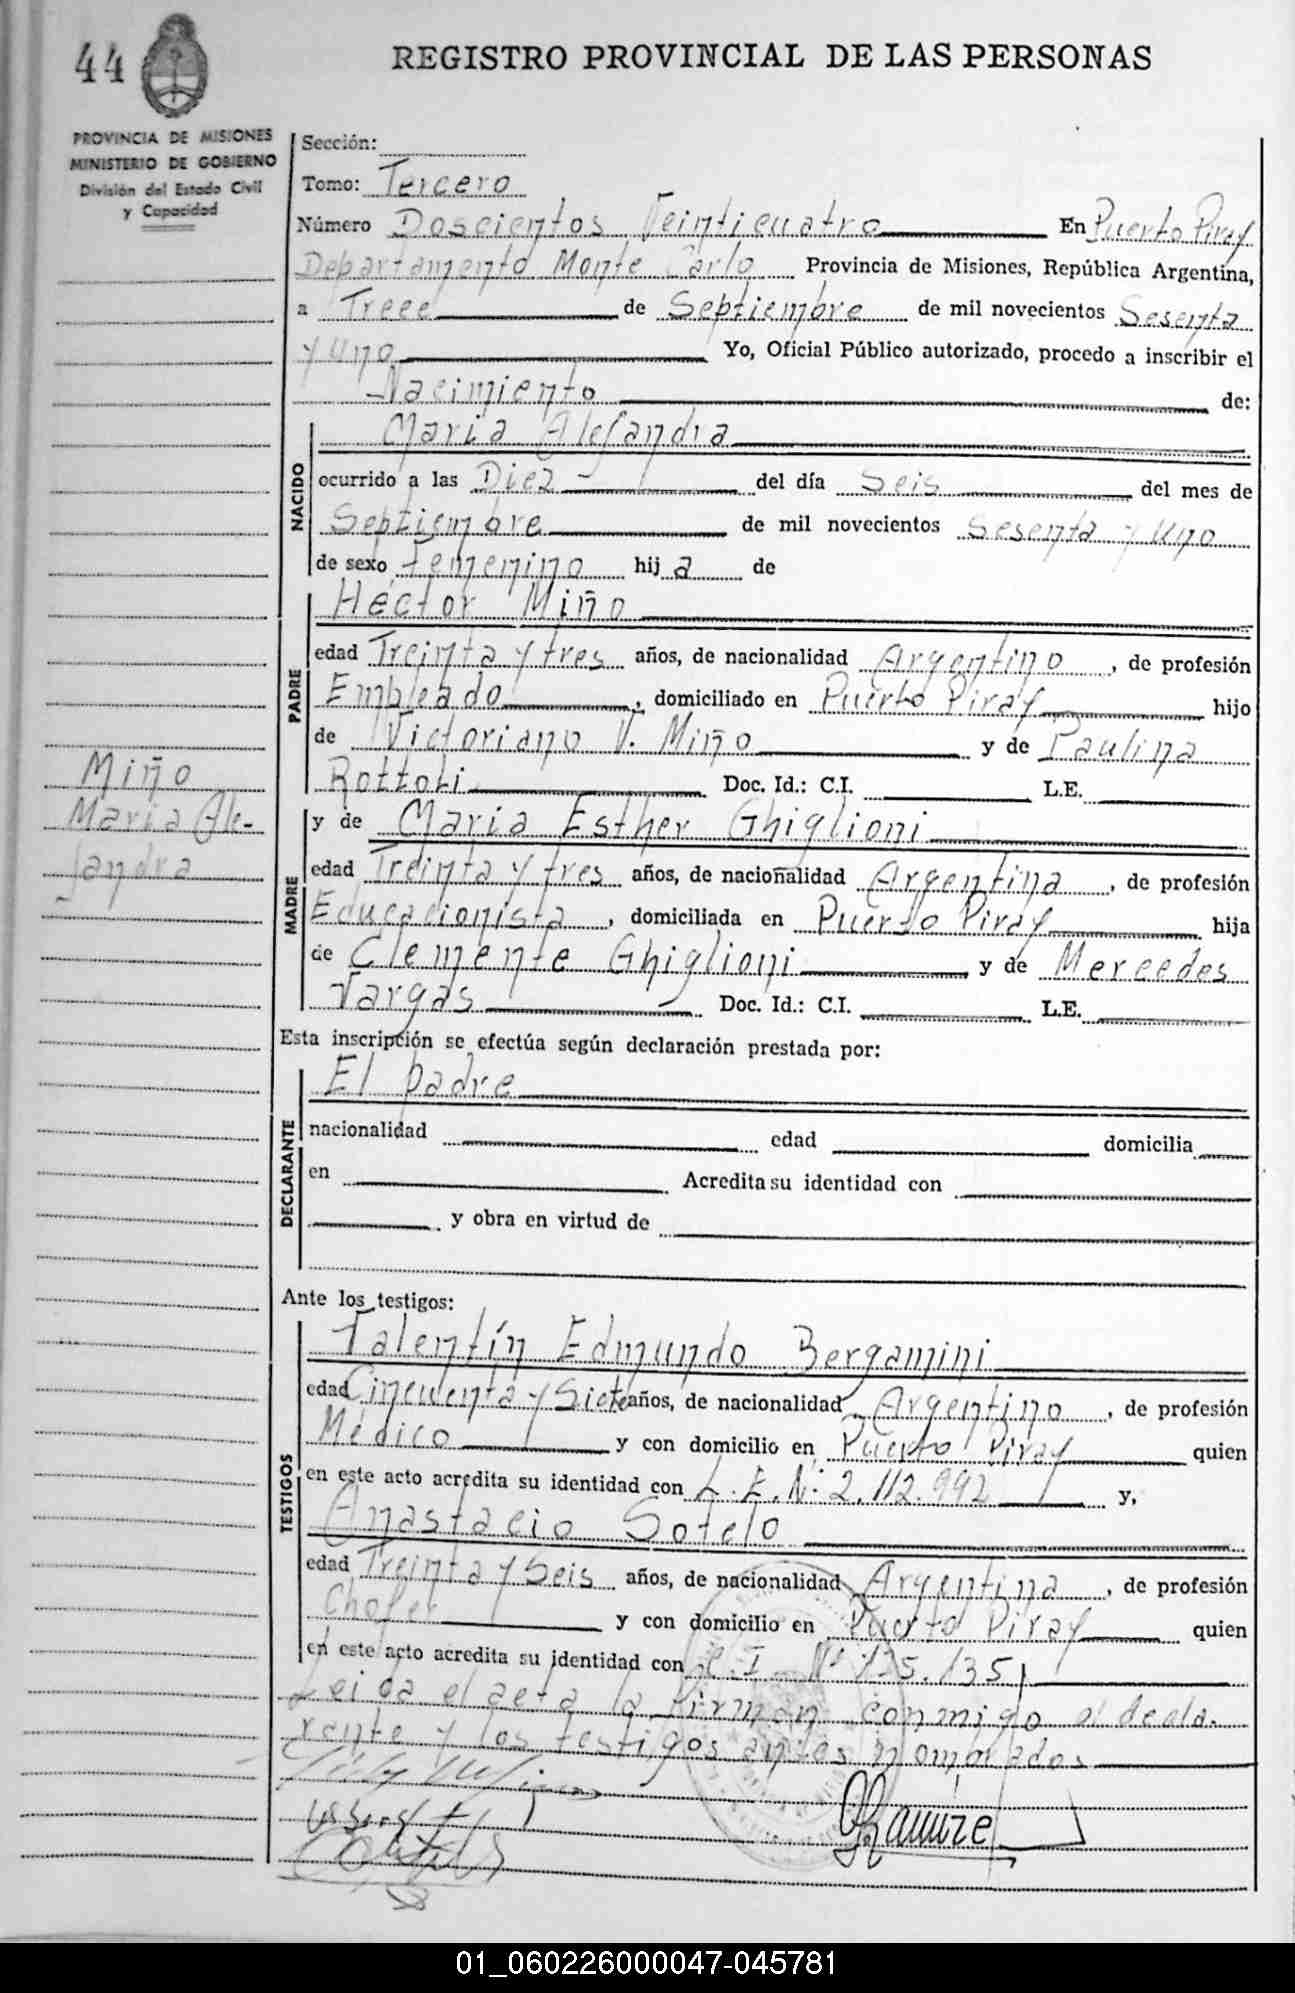 44
REGISTRO PROVINCIAL DE LAS PERSONAS
PROVINCIA DE MISIONES
MINISTERIO DE GOBIERNO
División del Estado Civil
y Capacidad
Sección:
Tomo: Tercero
Número Doscientos Veinticuatro En Puerto Piray
Departamento Monte Carlo Provincia de Misiones, República Argentina,
a Trece de Septiembre de mil novecientos Sesenta
y Uno Yo, Oficial Público autorizado, procedo a inscribir el
Nacimiento de:
NACIDO
Maria Alejandra
ocurrido a las Diez del día Seis del mes de
Septiembre de mil novecientos Sesenta y Uno
de sexo femenino hij a de
PADRE
Héctor Miño
edad Treinta y tres años, de nacionalidad Argentino, de profesión
Empleado, domiciliado en Puerto Piray hijo
de Victoriano V. Miño y de Paulina
Rottoli Doc. Id.: C.I. L.E.
Miño
Maria Ale-
jandra
MADRE
y de Maria Esther Ghiglioni
edad Treinta y tres años, de nacionalidad Argentina, de profesión
Educacionista, domiciliada en Puerto Piray hija
de Clemente Ghiglioni y de Mercedes
Vargas Doc. Id.: C.I. L.E.
Esta inscripción se efectúa según declaración prestada por:
DECLARANTE
El padre
nacionalidad edad domicilia
en Acredita su identidad con
y obra en virtud de
Ante los testigos:
TESTIGOS
Valentín Edmundo Bergamini
edad Cincuenta y Siete años, de nacionalidad Argentino, de profesión
Médico y con domicilio en Puerto Piray quien
en este acto acredita su identidad con L.E.Nº 2.112.992 y,
Anastacio Sotelo
edad Treinta y Seis años, de nacionalidad Argentina, de profesión
Chofer y con domicilio en Puerto Piray quien
en este acto acredita su identidad con C.I. Nº 175.135
Leida el acta la firman conmigo el decla-
rante y los testigos antes nombrados
Ramirez
01_060226000047-045781